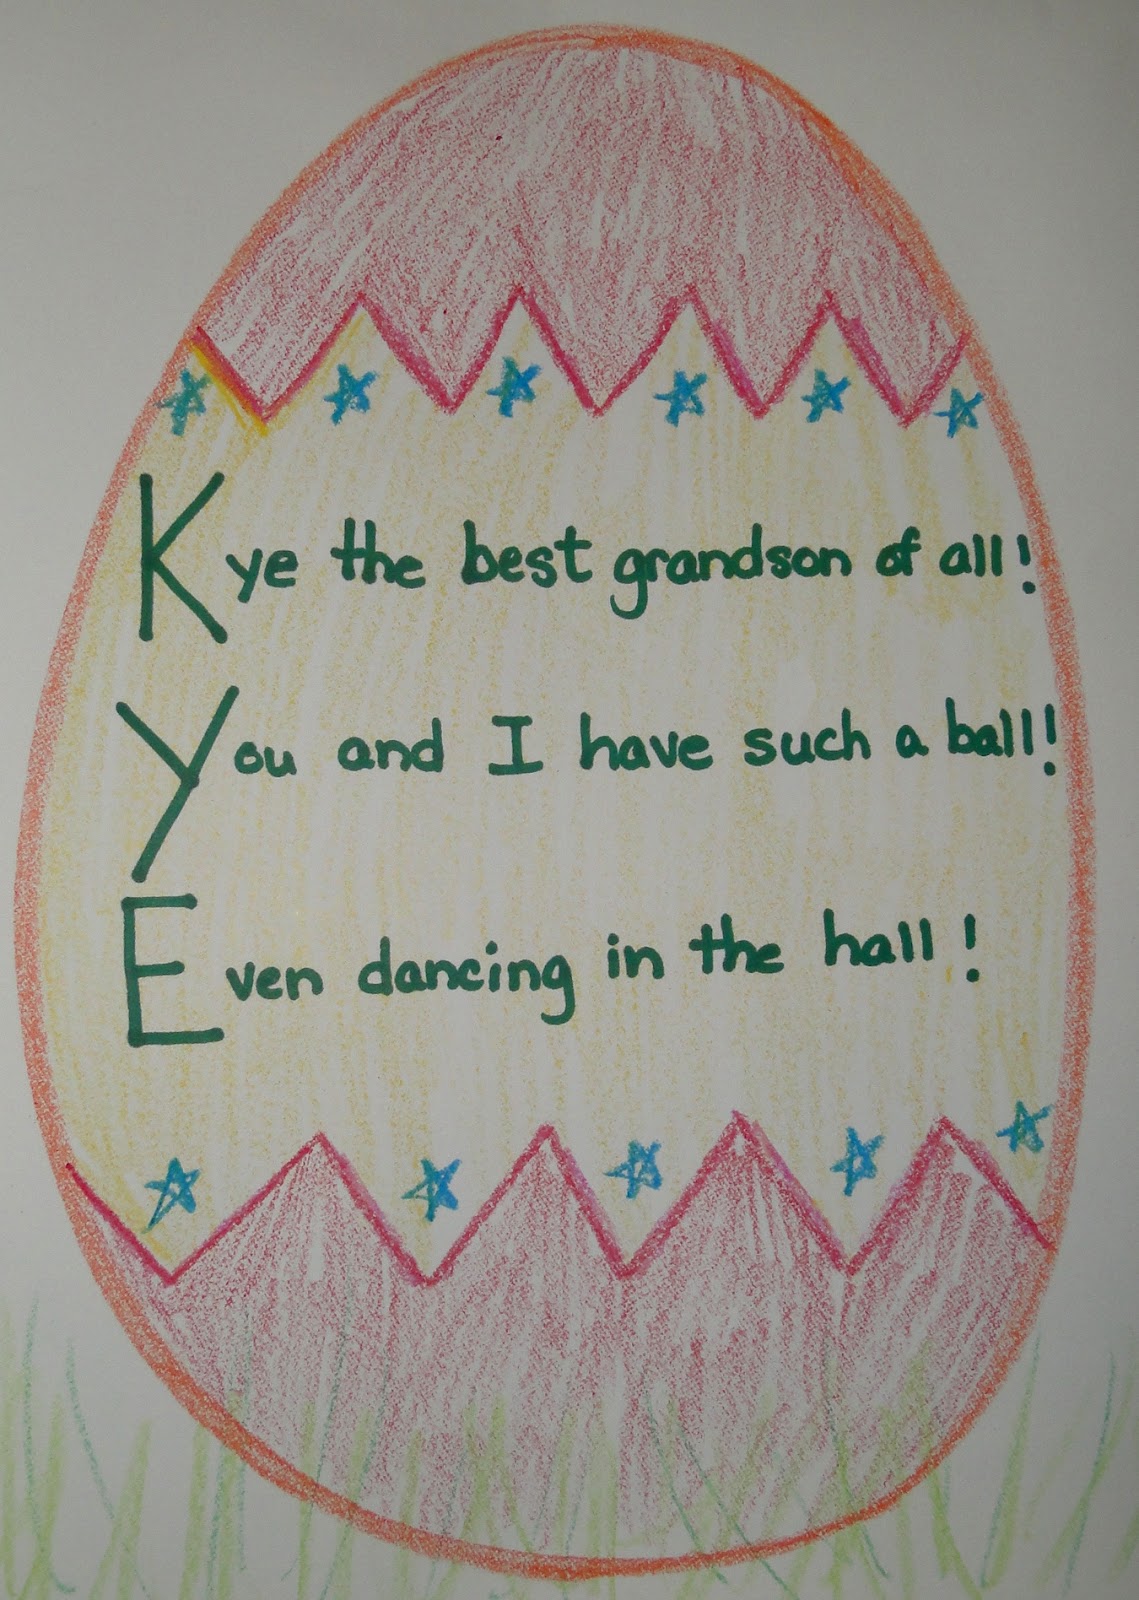 Kye the best grandson of all!
You and I have such a ball!
Even dancing in the hall!